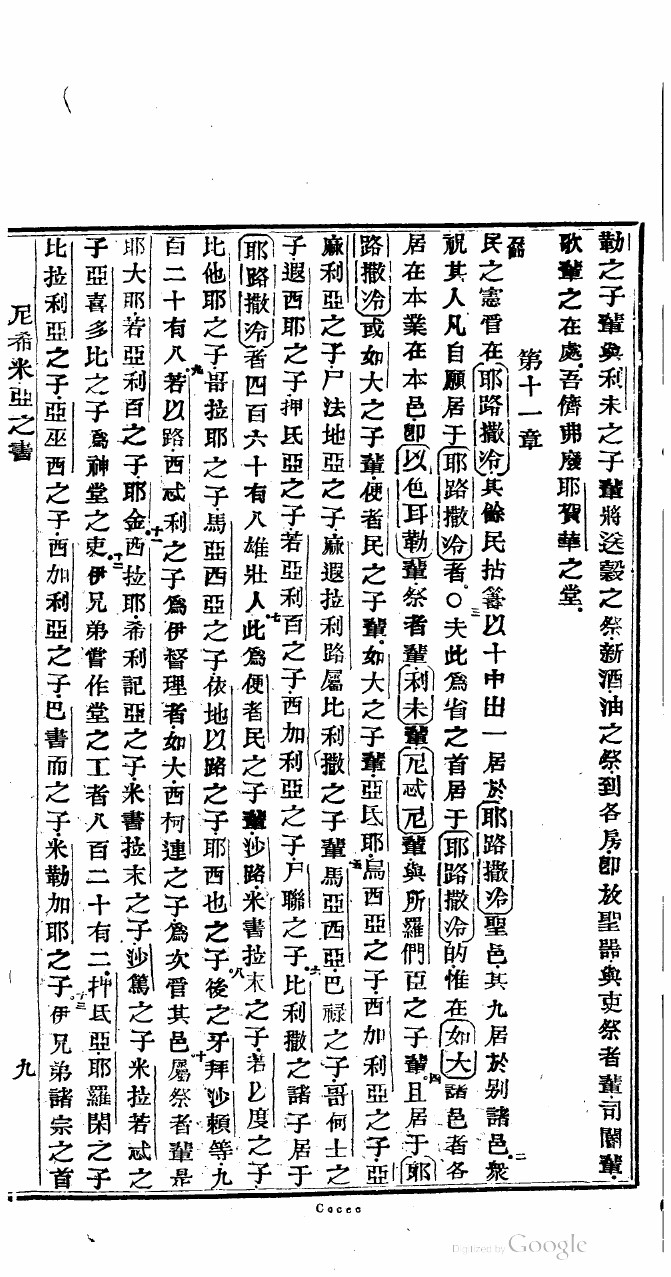 勒之子輩與利未之子輩將送穀之祭新酒油之祭到各房卽放聖器與吏祭者輩司閽輩
歌輩之在處吾儕弗廢耶賀華之堂
第十一章
民之憲晉在耶路撒冷其餘民拈簭以十中出一居於耶路撒冷聖邑其九居於别諸邑二衆
祝其人凡自願居于耶路撒冷者三〇夫此爲省之首居于耶路撒冷的惟在如大諸邑者各
居在本業在本邑卽以色耳勒輩祭者輩利未輩尼忒尼輩與所羅們臣之子輩四且居于耶
路撒冷或如大之子輩便者民之子輩如大之子輩亞氐耶烏西亞之子西加利亞之子亞
麻利亞之子尸法地亞之子麻遐拉利路屬比利撒之子輩五馬亞西亞巴祿之子哥何士之
子遐西耶之子押氐亞之子若亞利百之子西加利亞之子尸聯之子六比利撒之諸子居于
耶路撒冷者四百六十有八雄壯人七此爲便者民之子輩沙路米書拉末之子若以度之子
比他耶之子哥拉耶之子馬亞西亞之子依地以路之子耶西也之子八後之牙拜沙頼等九
百二十有八九若以路西忒利之子爲伊督理者如大西柯連之子爲次晉其邑十屬祭者輩是
耶大耶若亞利百之子耶金十一西拉耶希利記亞之子米書拉末之子沙篤之子米拉若忒之
子亞喜多比之子爲神堂之吏十二伊兄弟嘗作堂之工者八百二十有二押氐亞耶羅閑之子
比拉利亞之子亞巫西之子西加利亞之子巴書而之子米勒加耶之子十三伊兄弟諸宗之首
尼希米亞之書 九
Cocec
Digitized by Google